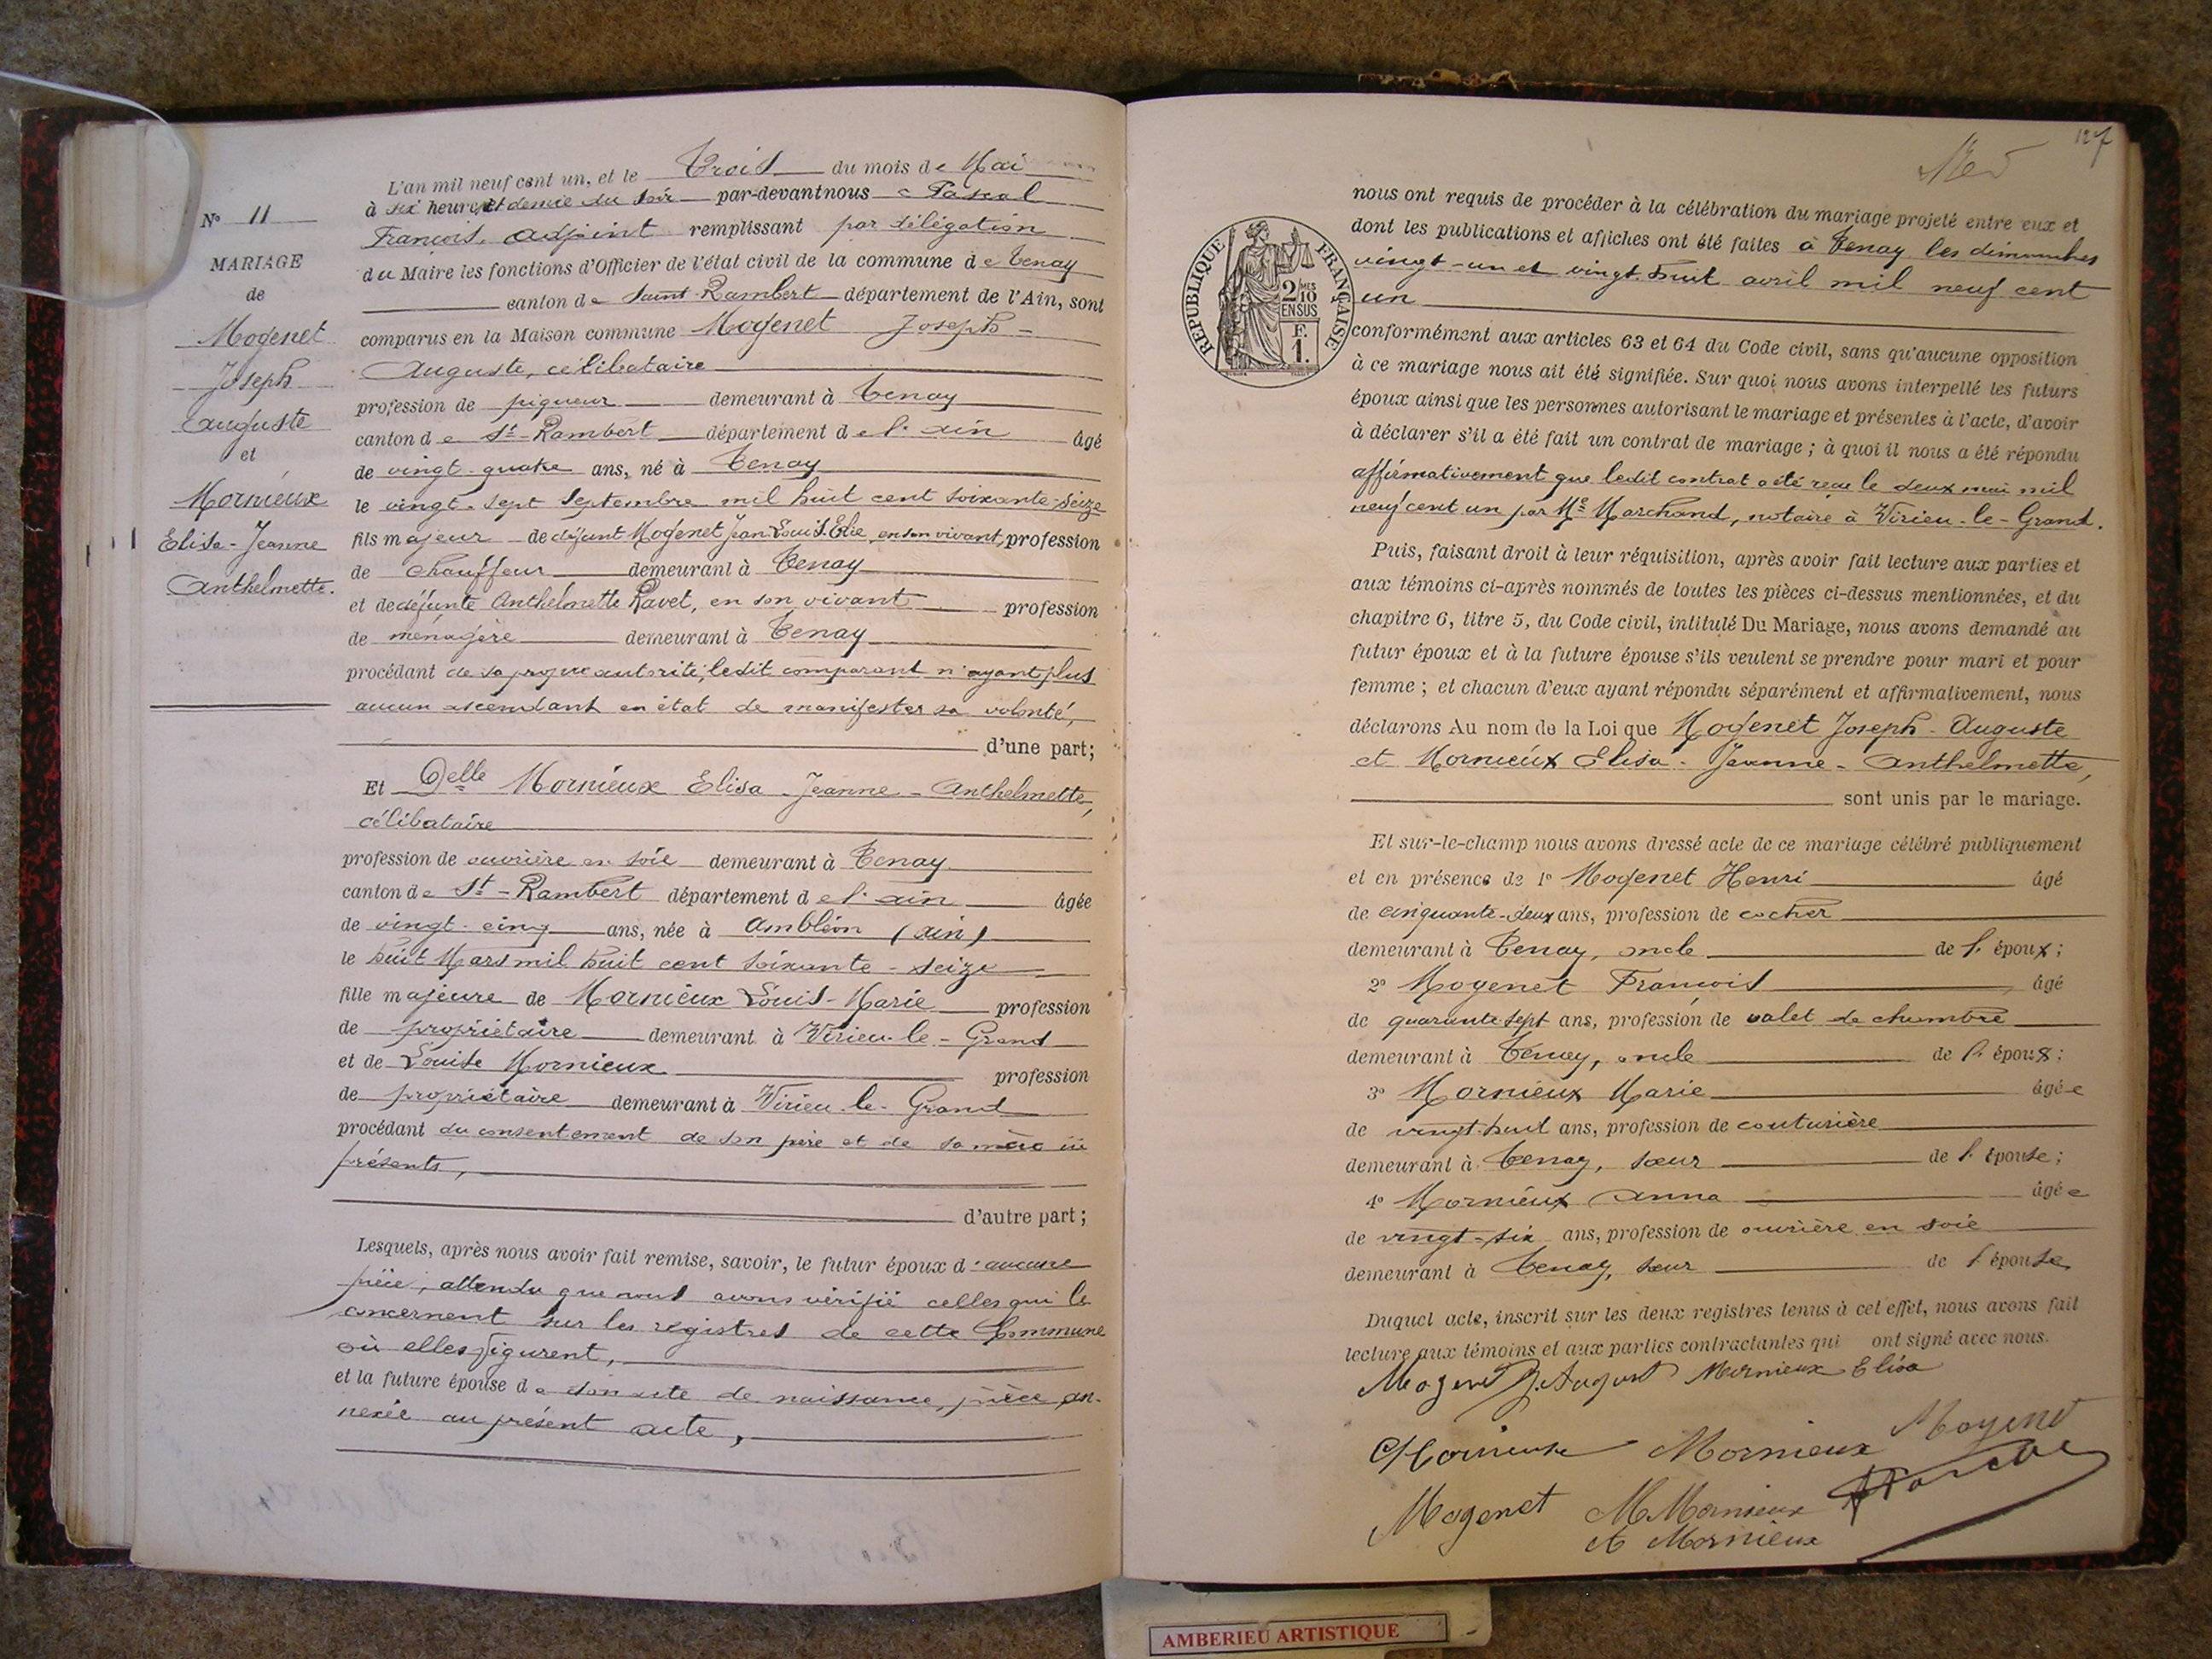 N° 11
MARIAGE
de
Mogenet
Joseph
Auguste
et
Mornieux
Elisa-Jeanne
Anthelmette.
L'an mil neuf cent un, et le Trois du mois de Mai
à six heures et demie du soir par-devant nous Pascal
François, adjoint remplissant par délégation
du Maire les fonctions d'Officier de l'état civil de la commune de Tenay
canton de Saint-Rambert département de l'Ain, sont
comparus en la Maison commune Mogenet Joseph-
Auguste, célibataire
profession de piqueur demeurant à Tenay
canton de St-Rambert département de l'ain âgé
de vingt-quatre ans, né à Tenay
le vingt-sept Septembre mil huit cent soixante-seize
fils majeur de défunt Mogenet Jean Louis Elie, en son vivant, profession
de chauffeur demeurant à Tenay
et de défunte Anthelmette Ravet, en son vivant profession
de ménagère demeurant à Tenay
procédant de sa propre autorité, ledit comparant n'ayant plus
aucun ascendant en état de manifester sa volonté,
d'une part;
Et Delle Mornieux Elisa-Jeanne-Anthelmette,
célibataire
profession de ouvrière en soie demeurant à Tenay
canton de St-Rambert département de l'ain âgée
de vingt-cinq ans, née à Ambléon (ain)
le huit Mars mil huit cent soixante-seize
fille majeure de Mornieux Louis-Marie profession
de propriétaire demeurant à Virieu-le-Grand
et de Louise Mornieux profession
de propriétaire demeurant à Virieu-le-Grand
procédant du consentement de son père et de sa mère ici
présents,
d'autre part;
Lesquels, après nous avoir fait remise, savoir, le futur époux d'aucune
pièce, attendu que nous avons vérifié celles qui le
concernent sur les registres de cette Commune
où elles figurent,
et la future épouse de son acte de naissance, pièce an-
nexée au présent acte,
127
nous ont requis de procéder à la célébration du mariage projeté entre eux et
dont les publications et affiches ont été faites à Tenay les dimanches
vingt-un et vingt-huit avril mil neuf cent
un
RÉPUBLIQUE FRANÇAISE
2 MES
10
EN SUS
F.
1.
conformément aux articles 63 et 64 du Code civil, sans qu'aucune opposition
à ce mariage nous ait été signifiée. Sur quoi nous avons interpellé les futurs
époux ainsi que les personnes autorisant le mariage et présentes à l'acte, d'avoir
à déclarer s'il a été fait un contrat de mariage; à quoi il nous a été répondu
affirmativement que ledit contrat a été reçu le deux mai mil
neuf cent un par Me Marchand, notaire à Virieu-le-Grand.
Puis, faisant droit à leur réquisition, après avoir fait lecture aux parties et
aux témoins ci-après nommés de toutes les pièces ci-dessus mentionnées, et du
chapitre 6, titre 5, du Code civil, intitulé Du Mariage, nous avons demandé au
futur époux et à la future épouse s'ils veulent se prendre pour mari et pour
femme; et chacun d'eux ayant répondu séparément et affirmativement, nous
déclarons Au nom de la Loi que Mogenet Joseph-Auguste
et Mornieux Elisa-Jeanne-Anthelmette,
sont unis par le mariage.
Et sur-le-champ nous avons dressé acte de ce mariage célébré publiquement
et en présence de 1° Mogenet Henri âgé
de cinquante-deux ans, profession de cocher
demeurant à Tenay, oncle de l'époux;
2° Mogenet François âgé
de quarante sept ans, profession de valet de chambre
demeurant à Tenay, oncle de l'époux;
3° Mornieux Marie âgée
de vingt-huit ans, profession de couturière
demeurant à Tenay, sœur de l'épouse;
4° Mornieux Anna âgée
de vingt-six ans, profession de ouvrière en soie
demeurant à Tenay, sœur de l'épouse
Duquel acte, inscrit sur les deux registres tenus à cet effet, nous avons fait
lecture aux témoins et aux parties contractantes qui ont signé avec nous.
Mogenet J. August Mornieux Elisa
Mornieux Mornieux Mogenet
Mogenet M Mornieux Pascal
A Mornieux
AMBERIEU ARTISTIQUE